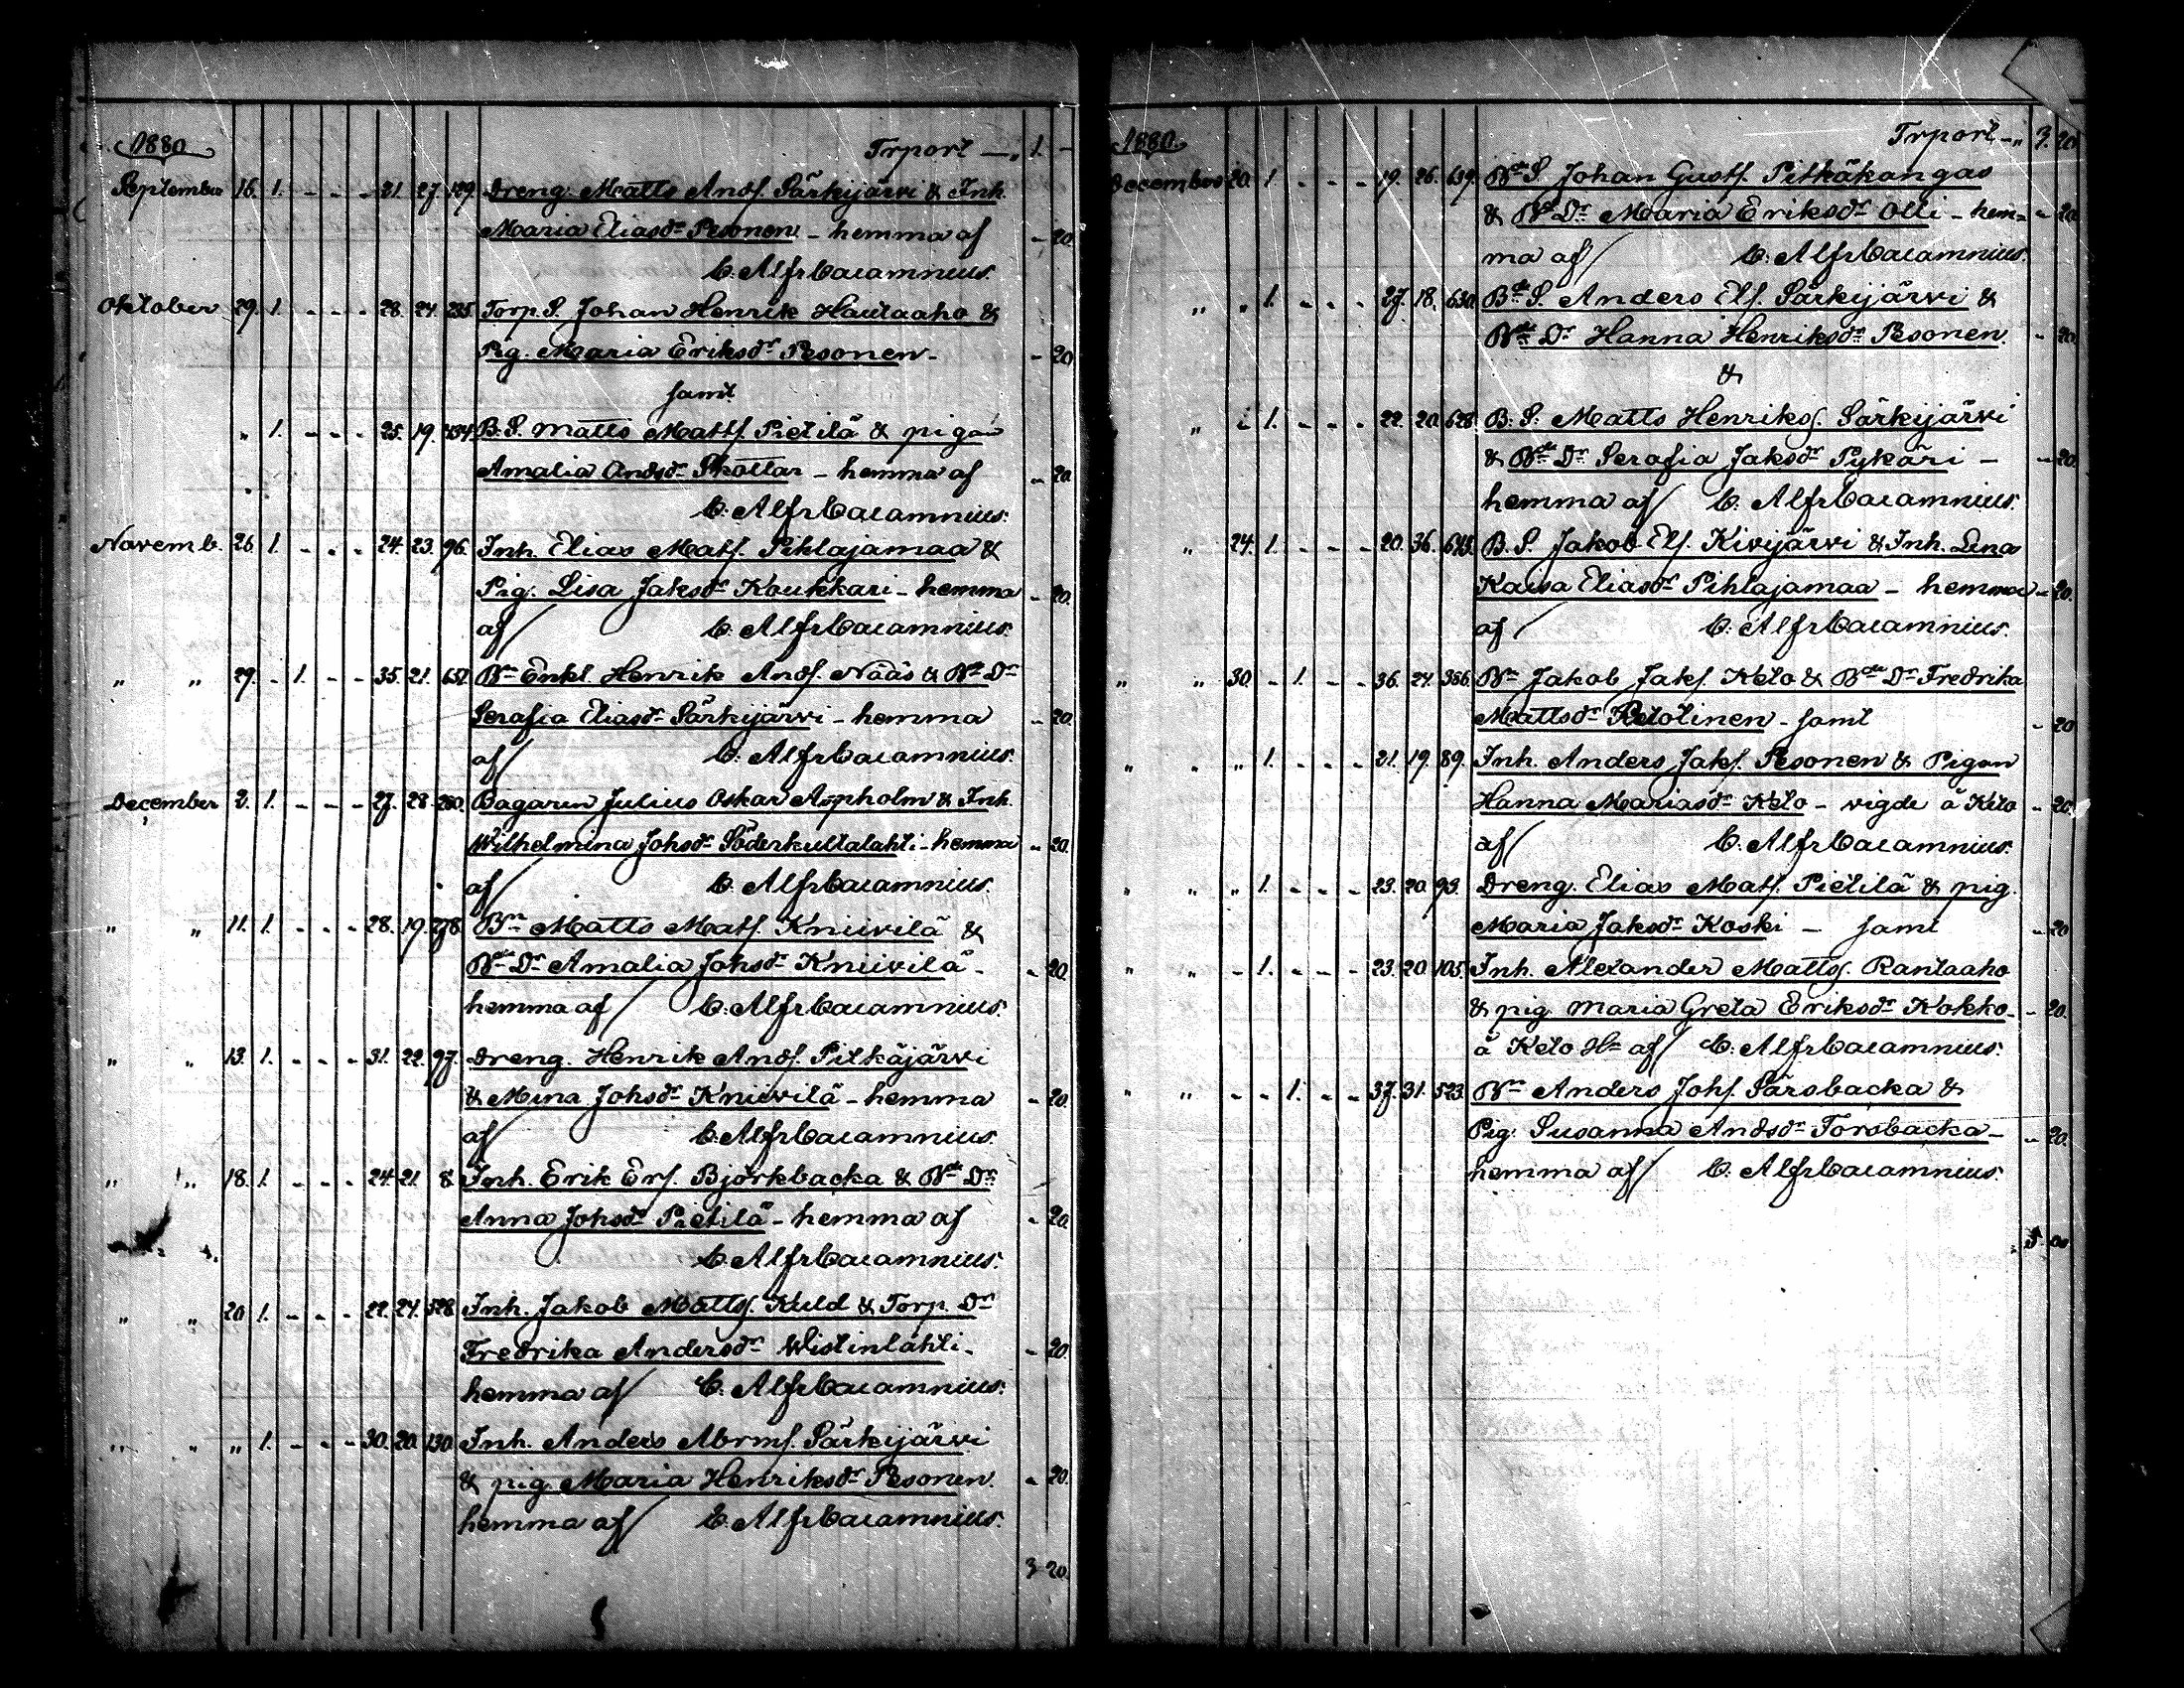 1880
Trport — „ 1. —
September 16. 1. - - - 21. 27. 129. Dreng Matts Ands. Särkijärvi & Inh.
Maria Eliasdr Pesonen - hemma af - 20.
C. Alfr Cajamnius.
Oktober 29. 1. - - - 28. 24. 235. Torp. S. Johan Henrik Hautaaho &
Pig. Maria Eriksdr Pesonen - - 20
samt
„ 1. - - - 25. 19. 434. B. S. Matts Matts. Pietilä & pigan
Amalia Andsdr Skottar - hemma af - 20
C. Alfr Cajamnius.
Novemb. 26. 1. - - - 24. 23. 96. Inh. Elias Mats. Pihlajamaa &
Pig. Lisa Jaksdr Koukkari - hemma - 20.
af C. Alfr Cajamnius.
„ „ 29. - 1. - - 35. 21. 657. Bn Enkl. Henrik Ands. Nääs & Bde Dr
Serafia Eliasdr Särkijärvi - hemma - 20.
af C. Alfr Cajamnius.
December 2. 1. - - - 27. 28. 280. Bagaren Julius Oskar Aspholm & Inh.
Wilhelmina Johsdr Söderkultalahti - hemma - 20.
af C. Alfr Cajamnius.
„ „ 11. 1. - - - 28. 19. 278. Bn Matts Mats. Kniivilä &
Bde Dr Amalia Johsdr Kniivilä - - 20.
hemma af C. Alfr Cajamnius.
„ „ 13. 1. - - - 31. 22. 97. Dreng. Henrik Ands. Pitkäjärvi
& Mina Johsdr Kniivilä - hemma - 20.
af C. Alfr Cajamnius.
„ „ 18. 1. - - - 24. 21. 8 Inh. Erik Ers. Björkbacka & Bde Dr
Anna Johsdr Pietilä - hemma af - 20.
C. Alfr Cajamnius.
„ „ 20 1. - - - 22. 24. 528. Inh. Jakob Matts. Kuld & Torp. Dr
Fredrika Andersdr Wistinlahti - - 20.
hemma af C. Alfr Cajamnius.
„ „ „ 1. - - - 30. 20. 130. Inh. Anders Abrms. Särkijärvi
& pig. Maria Henriksdr Pesonen. - 20.
hemma af C. Alfr Cajamnius.
3 20.
1880.
Trport - „ 3. 20
December 20. 1. - - - 19. 26. 639. Bde S. Johan Gusts. Pitkäkangas
& Bde Dr Maria Eriksdr Olli - hem= - 20.
ma af C. Alfr Cajamnius.
„ „ 1. - - - 27. 18. 630. Bde S. Anders Els. Särkijärvi &
Bde Dr Hanna Henriksdr Pesonen. - 20.
&
„ „ 1. - - - 22. 20. 628. B. S. Matts Henriks. Särkijärvi
& Bde Dr Serafia Jaksdr Pykäri - - 20.
hemma af C. Alfr Cajamnius.
„ 24. 1. - - - 20. 36. 645. B. S. Jakob Els. Kivijärvi & Inh. Lena
Kaisa Eliasdr Pihlajamaa - hemma - 20.
af C. Alfr Cajamnius.
„ „ 30. - 1. - - 36. 24. 356. Bn Jakob Jaks. Keto & Bde Dr Fredrika
Mattsdr - samt - 20
„ „ „ 1. - - - 21. 19. 89. Inh. Anders Jaks. Pesonen & Pigan
Hanna Mariasdr Keto - vigde å Keto - 20.
af C. Alfr Cajamnius.
„ „ „ 1. - - - 23. 20. 93. Dreng. Elias Mats. Pietilä & pig.
Maria Jaksdr Koski - samt - 20
„ „ - 1. - - - 23. 20. 105. Inh. Alexander Matts. Rantaaho
& pig. Maria Greta Eriksdr Kokko - - 20.
å Keto Hn af C. Alfr Cajamnius.
„ „ - - 1. - - 37. 31. 523. Bn Anders Johs. Särsbacka &
Pig. Susanna Andsdr Torsbacka - - 20.
hemma af C. Alfr Cajamnius.